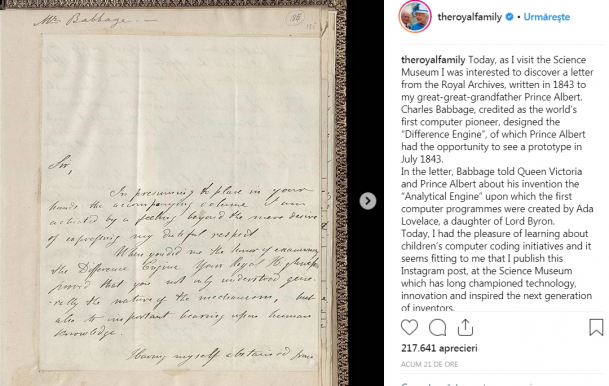 Mr Babbage. —
186
Sir,
In presuming to place in your
hands the accompanying volume I am
actuated by a feeling beyond the mere desire
of expressing my dutiful respect
When you did me the honor of examining
the Difference Engine Your Royal Highness
proved that you not only understood gene-
-rally the nature of the mechanism, but
also its important bearing upon human
knowledge.
Having myself abstained from
theroyalfamily • Urmărește
theroyalfamily Today, as I visit the Science
Museum I was interested to discover a letter
from the Royal Archives, written in 1843 to
my great-great-grandfather Prince Albert.
Charles Babbage, credited as the world's
first computer pioneer, designed the
“Difference Engine”, of which Prince Albert
had the opportunity to see a prototype in
July 1843.
In the letter, Babbage told Queen Victoria
and Prince Albert about his invention the
“Analytical Engine” upon which the first
computer programmes were created by Ada
Lovelace, a daughter of Lord Byron.
Today, I had the pleasure of learning about
children's computer coding initiatives and it
seems fitting to me that I publish this
Instagram post, at the Science Museum
which has long championed technology,
innovation and inspired the next generation
of inventors.
217.641 aprecieri
ACUM 21 DE ORE